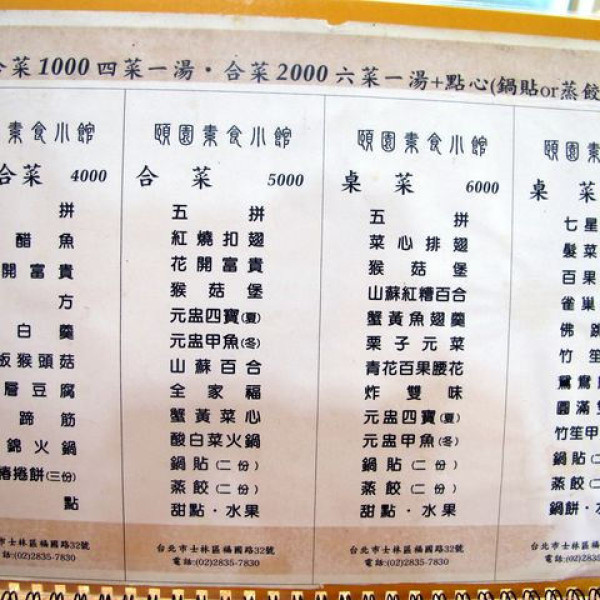 合菜1000四菜一湯・合菜2000六菜一湯+點心(鍋貼or蒸餃
素食小館
合菜 4000
拼
醋魚
開富貴
方
白羹
板猴頭菇
層豆腐
蹄筋
錦火鍋
捲餅(三份)
點
北市士林區福國路32號
電話:(02)2835-7830
頤園素食小館
合菜 5000
五拼
紅燒扣翅
花開富貴
猴菇堡
元盅四寶(夏)
元盅甲魚(冬)
山蘇百合
全家福
蟹黃菜心
酸白菜火鍋
鍋貼(二份)
蒸餃(二份)
甜點・水果
台北市士林區福國路32號
電話:(02)2835-7830
頤園素食小館
桌菜 6000
五拼
菜心排翅
猴菇堡
山蘇紅糟百合
蟹黃魚翅羹
栗子元菜
青花百果腰花
炸雙味
元盅四寶(夏)
元盅甲魚(冬)
鍋貼(二份)
蒸餃(二份)
甜點・水果
台北市士林區福國路32號
電話:(02)2835-7830
頤園素食
桌菜
七星
髮菜
百果
雀巢
佛跳
竹笙
鴛鴦
圓滿
竹笙甲
鍋貼(二
蒸餃(二
鍋餅・水
台北市士林區福
電話:(02)2835